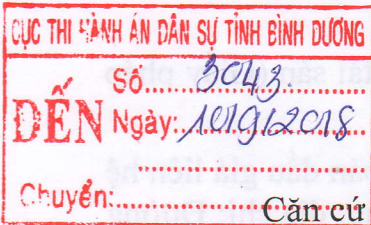 CỤC THI HÀNH ÁN DÂN SỰ TỈNH BÌNH DƯƠNG
ĐẾN
Số: 3043.
Ngày: 10/9/2018
Chuyển:
Căn cứ